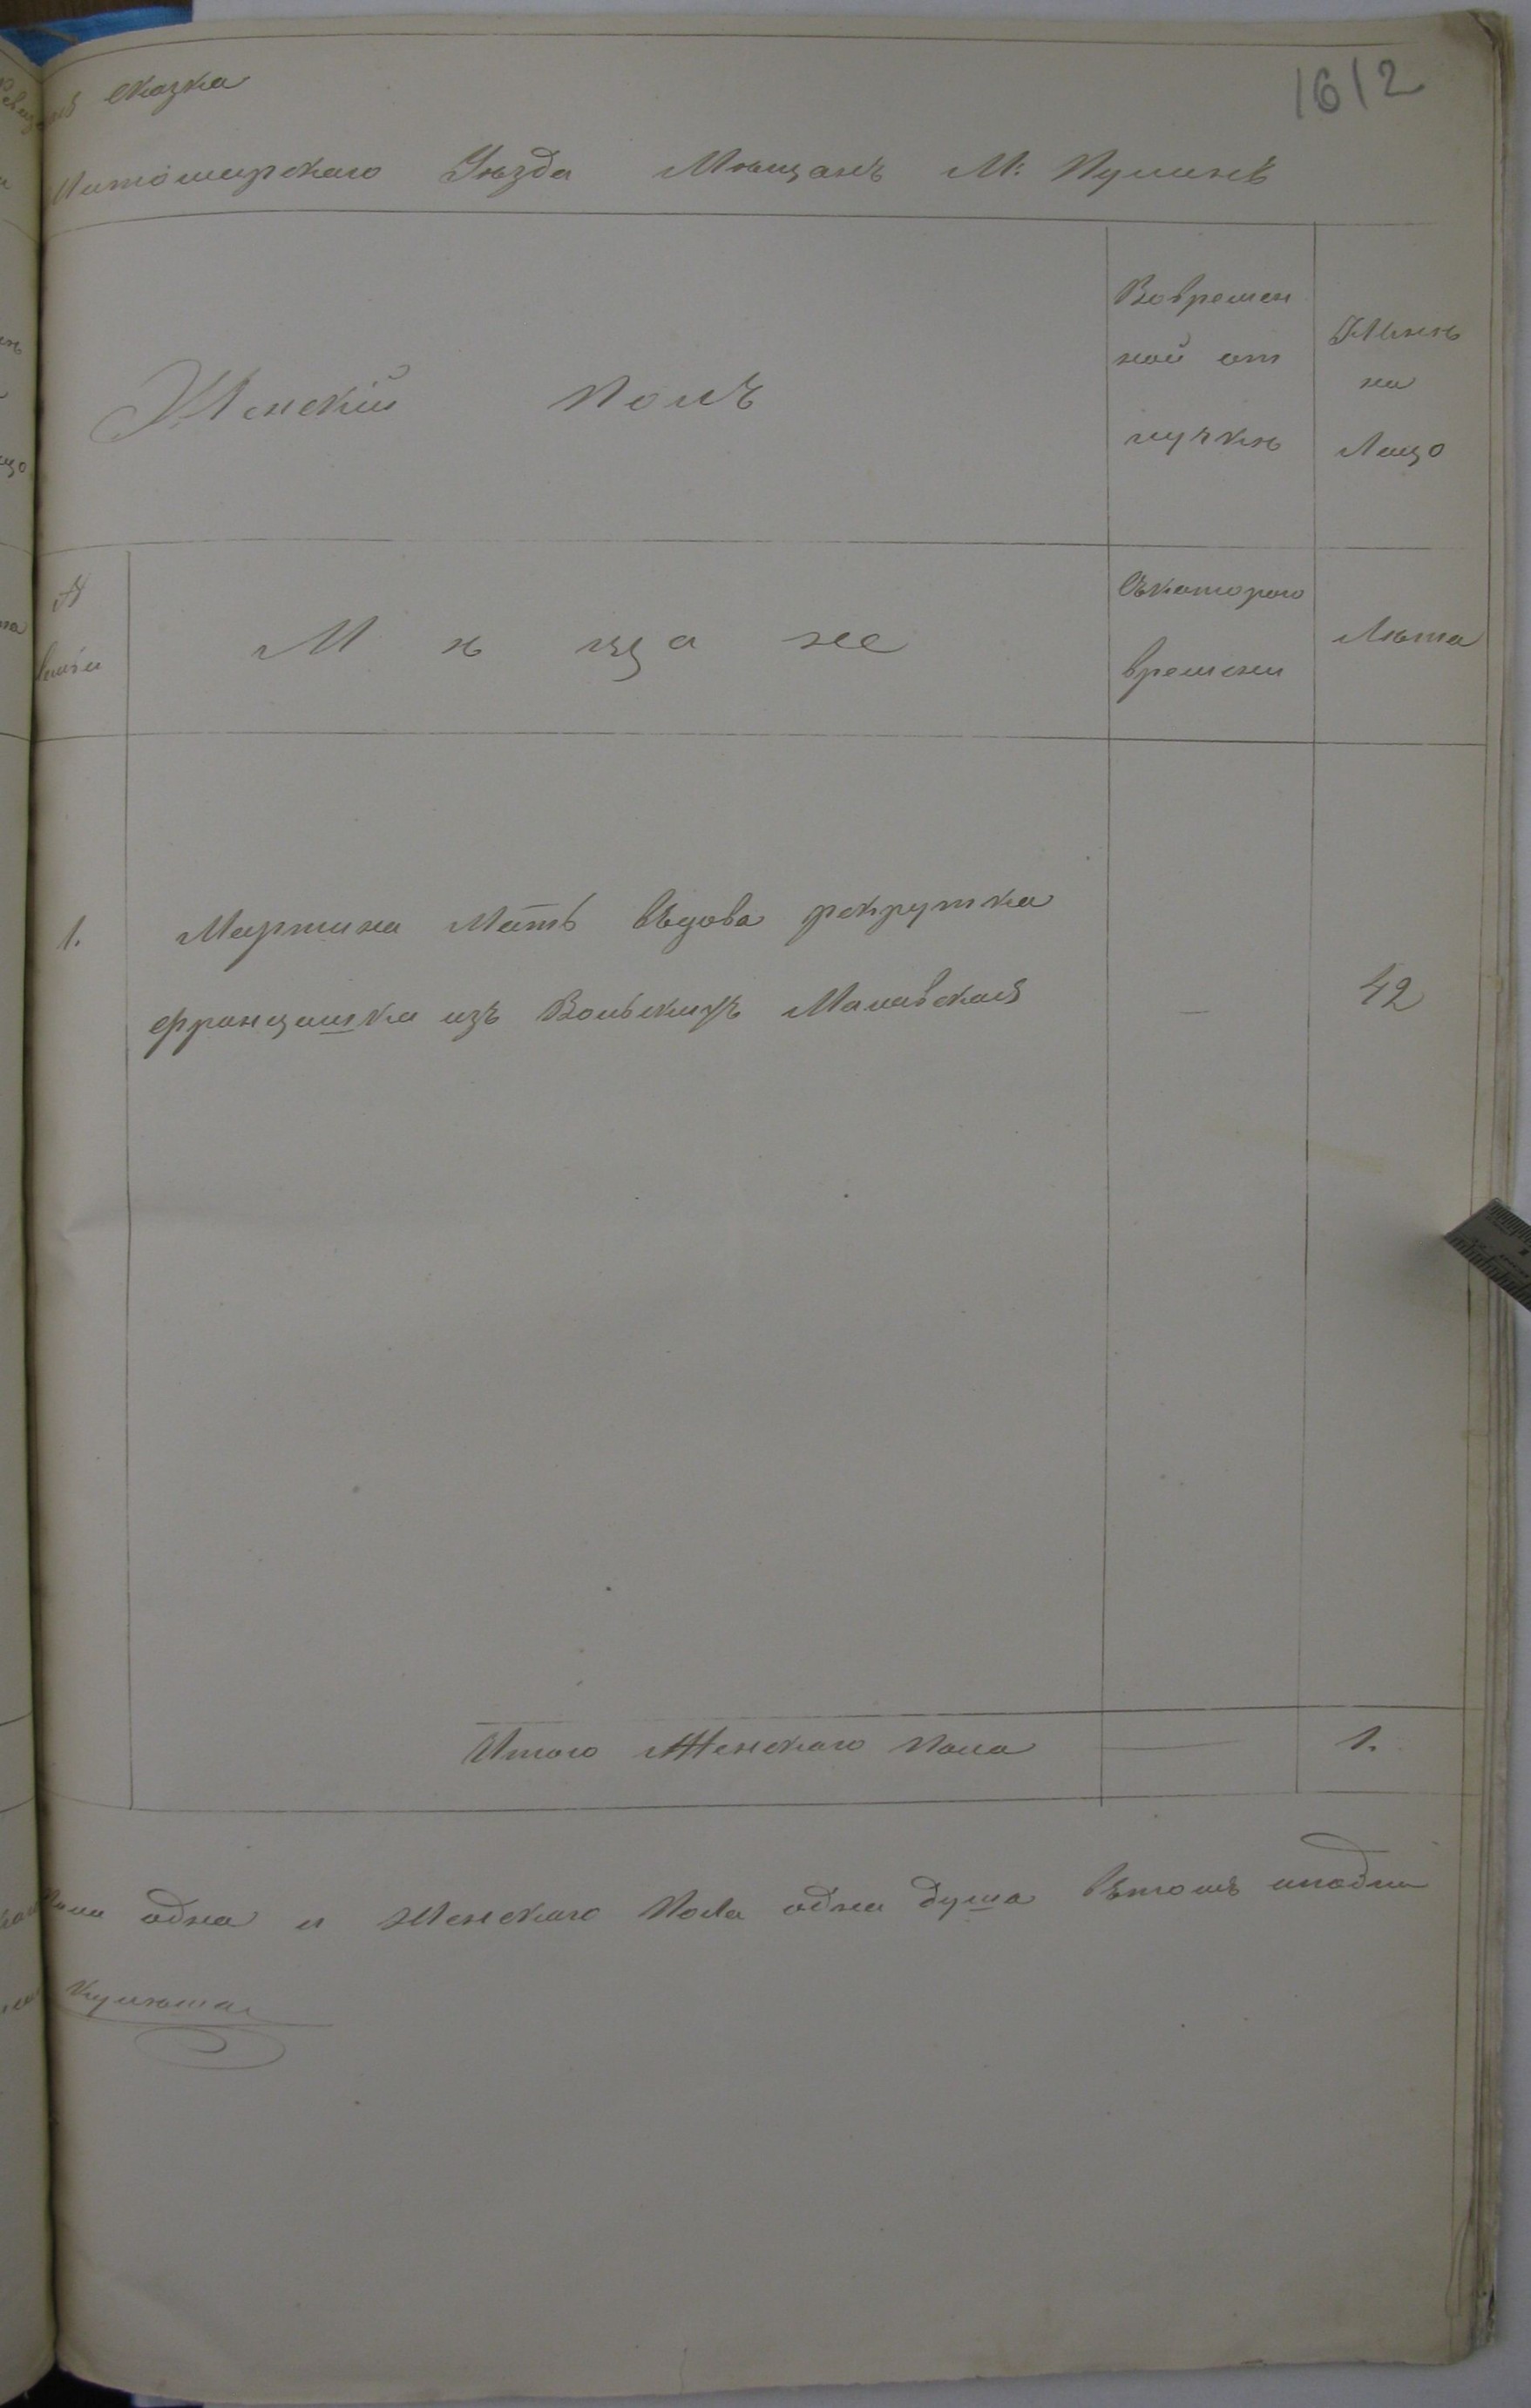 сказка
1612
Житомирскаго Уѣзда Мѣщанъ М. Пулинъ
Женскій Полъ
Вовремен
ной от
лучкѣ
Нынѣ
на
Лицо
№
семьи
Мѣщане
Съкоторого
времени
Лѣта
1.
Мартина Мать въдова рекрутка
Францишка изъ Вольскихъ Малавская
—
42
Итого Женскаго Пола
—
1.
одна и Женскаго Пола одна душа вътомъ